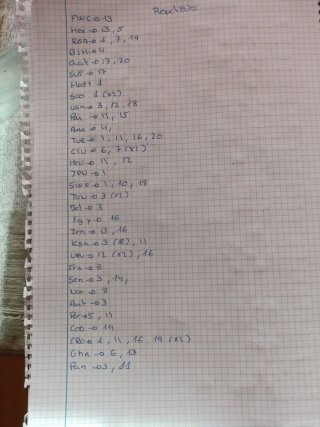 Repetidos
FWC → 13
Mex → 13, 5
RSA → 1, 7, 19
BIH → 4
Qat → 17, 20
SUI → 17
Haiti 1
SCO 1 (x2)
USA → 3, 12, 18
Par → 11, 15
Aus → 4,
TUR → 1, 11, 16, 20
CIV → 6, 7 (x2)
NED → 11, 12
JPN → 1
SWE → 1, 10, 18
TUN → 3 (x2)
Bel → 3
Egy → 16
Irn → 13, 16
KSA → 3 (2), 11
URU → 12 (x2), 16
Fra → 8
Sen → 3, 14,
Nor → 8
Aut → 3
Por → 5, 11
COD → 19
CRO → 1, 11, 16 19 (x2)
Gha → 6, 13
Pan → 3, 11